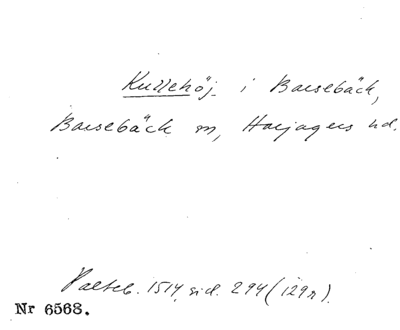 Kullehöj i Barsebäck,
Barsebäck sn, Harjagers hd.
Palteb. 1514, sid. 294 (129r).
Nr 6568.